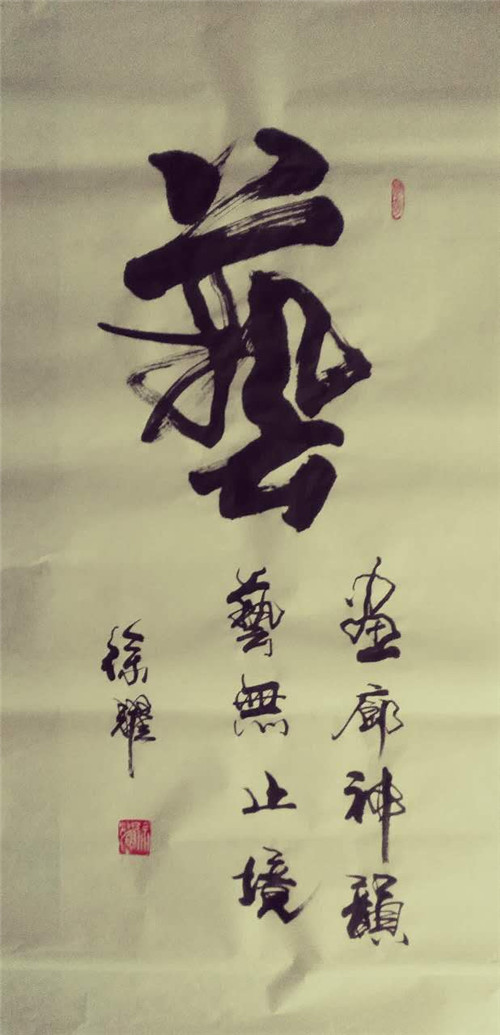 藝
畫廊神韻
藝無止境
徐耀